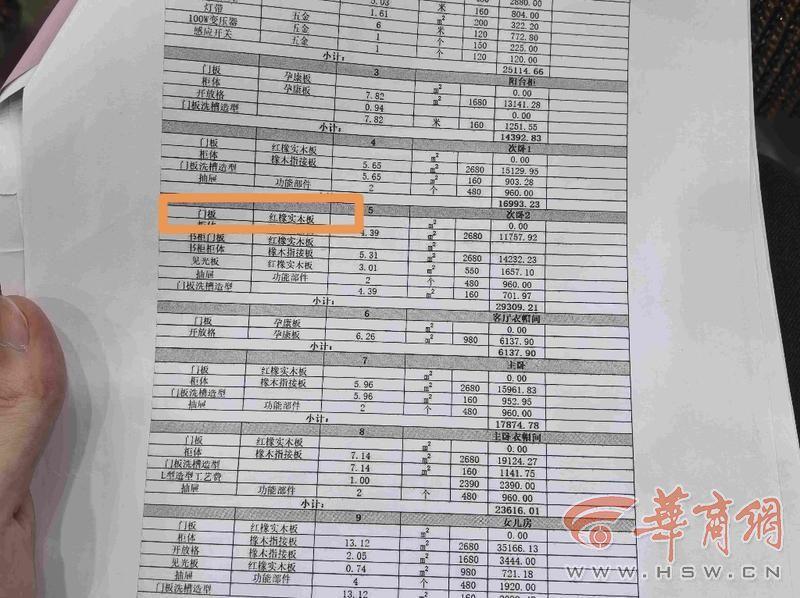 5.03 米 160 2880.00
灯带 1.61 m² 200 804.00
100W变压器 五金 6 米 120 322.20
感应开关 五金 1 个 150 772.80
五金 1 个 120 225.00
120.00
小计: 25114.66
3 阳台柜
门板 孕康板 m² 0.00
柜体 孕康板 7.82 m² 1680 13141.28
开放格 0.94 0.00
门板洗槽造型 7.82 米 160 1251.55
小计: 14392.83
4 次卧1
门板 红橡实木板 m² 0.00
柜体 橡木指接板 5.65 m² 2680 15129.95
门板洗槽造型 5.65 m² 160 903.28
抽屉 功能部件 2 个 480 960.00
16993.23
5 次卧2
门板 红橡实木板 m² 0.00
柜体 4.39 m² 2680 11757.92
书柜门板 红橡实木板 m²
书柜柜体 橡木指接板 5.31 m² 2680 14232.23
见光板 红橡实木板 3.01 m² 550 1657.10
抽屉 功能部件 2 个 480 960.00
门板洗槽造型 4.39 m² 160 701.97
小计: 29309.21
6 客厅衣帽间
门板 孕康板 m² 0.00
开放格 孕康板 6.26 m² 980 6137.90
小计: 6137.90
7 主卧
门板 红橡实木板 m² 0.00
柜体 橡木指接板 5.96 m² 2680 15961.83
门板洗槽造型 5.96 m² 160 952.95
抽屉 功能部件 2 个 480 960.00
小计: 17874.78
8 主卧衣帽间
门板 红橡实木板 m² 0.00
柜体 橡木指接板 7.14 m² 2680 19124.27
门板洗槽造型 7.14 m² 160 1141.75
L型造型工艺费 1.00 2390 2390.00
抽屉 功能部件 2 个 480 960.00
小计: 23616.01
9 女儿房
门板 红橡实木板 m² 0.00
柜体 橡木指接板 13.12 m² 2680 35166.13
开放格 橡木指接板 2.05 m² 1680 3444.00
见光板 红橡实木板 0.74 m² 980 721.18
抽屉 功能部件 4 个 480 1920.00
门板洗槽造型 13.12 m² 160
華商網
WWW.HSW.CN